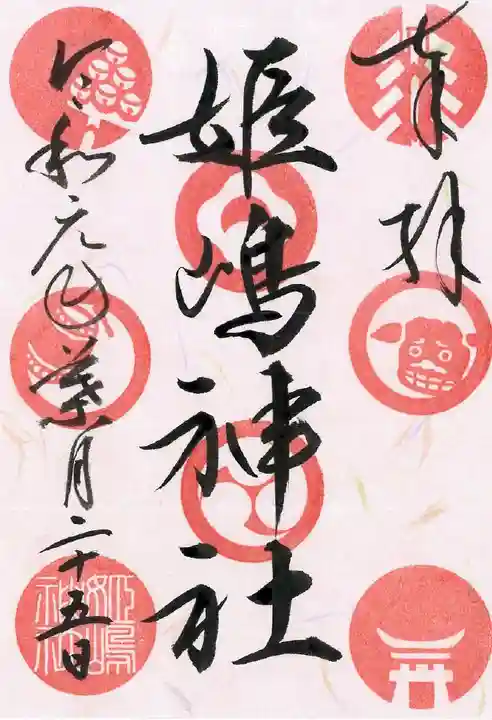 奉拝
姫嶋神社
令和元年葉月二十五日
姫嶋神社